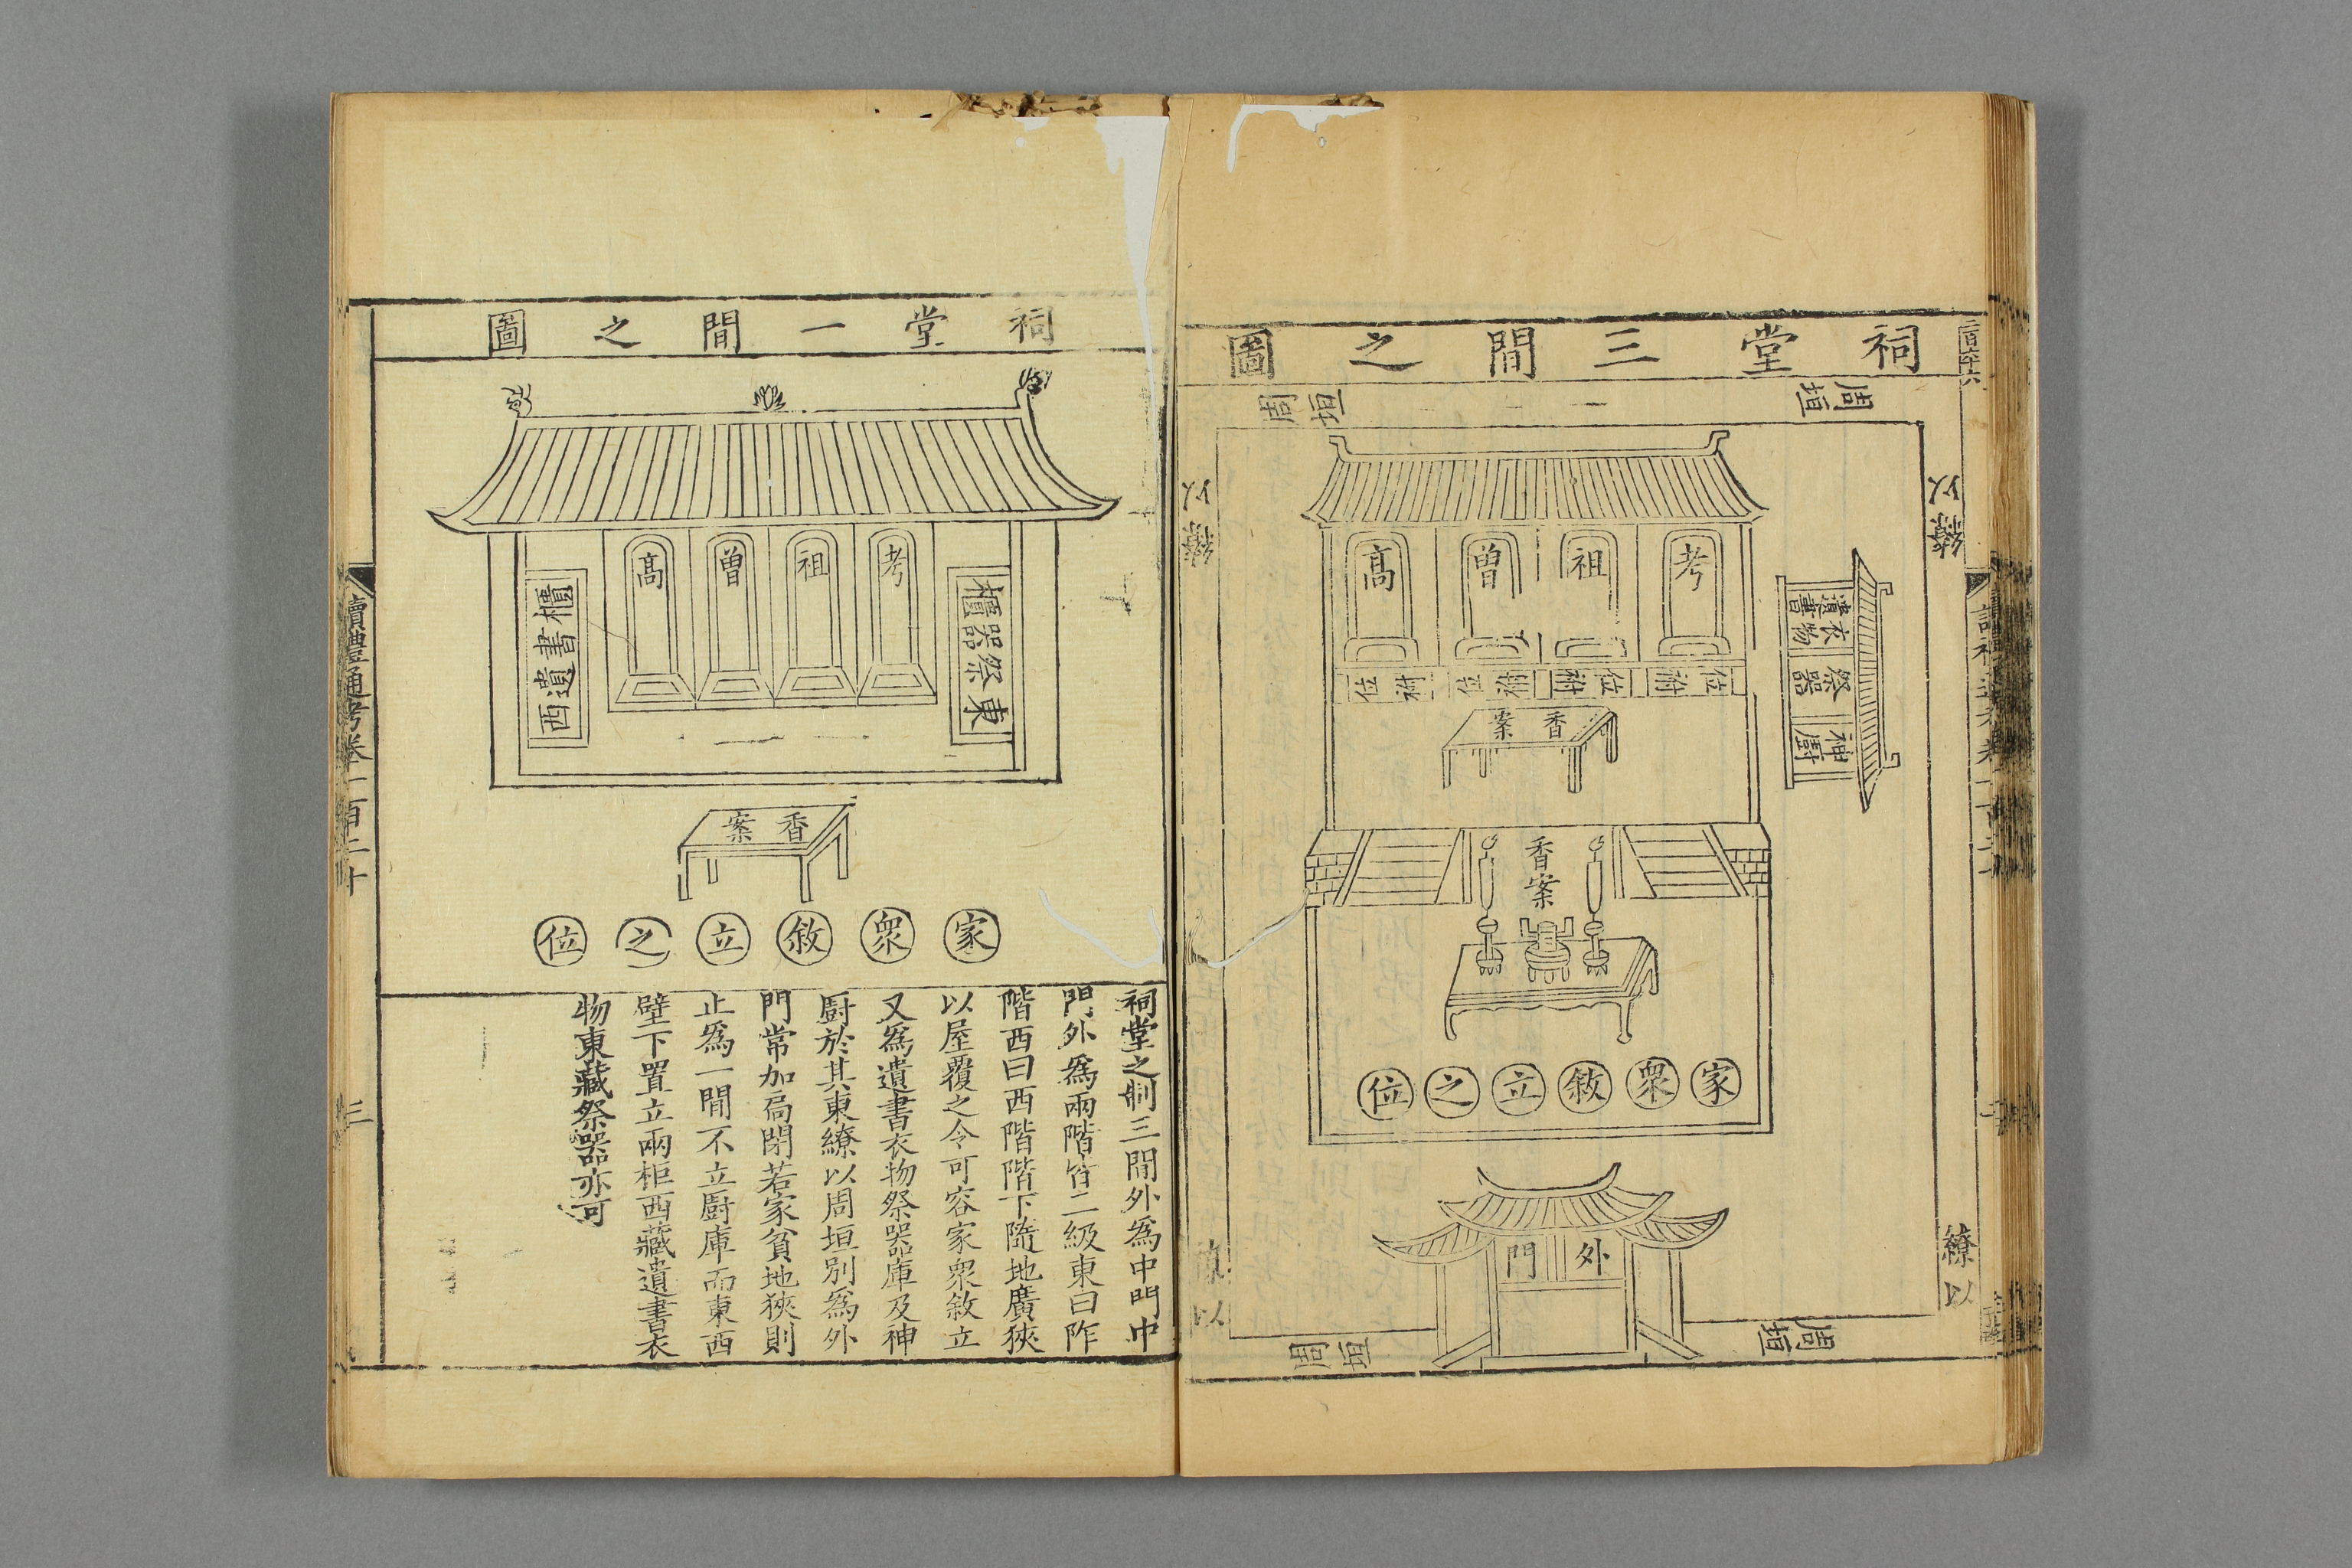 祠堂三間之圖
周垣
周垣
繚以
繚以
高 曾 祖 考
祔位
祔位
祔位
祔位
遺書衣物
祭器
神廚
香案
香案
家眾敘立之位
外門
繚以
周垣
周垣
祠堂一間之圖
考
祖
曾
高
東祭器櫃
西遺書櫃
香案
家眾敘立之位
祠堂之制三間外爲中門中
門外爲兩階皆二級東曰阼
階西曰西階階下隨地廣狹
以屋覆之令可容家眾敘立
又爲遺書衣物祭器庫及神
廚於其東繚以周垣別爲外
門常加扄閉若家貧地狹則
止爲一間不立廚庫而東西
壁下置立兩柜西藏遺書衣
物東藏祭器亦可
讀禮通考卷一百二十
三